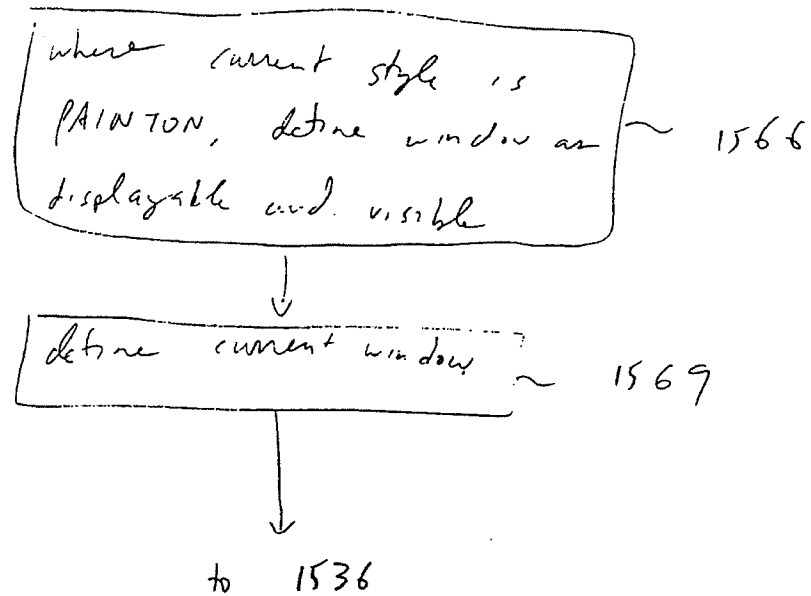 where current style is
PAINTON, define window as ~ 1566
displayable and visible
define current window ~ 1569
to 1536